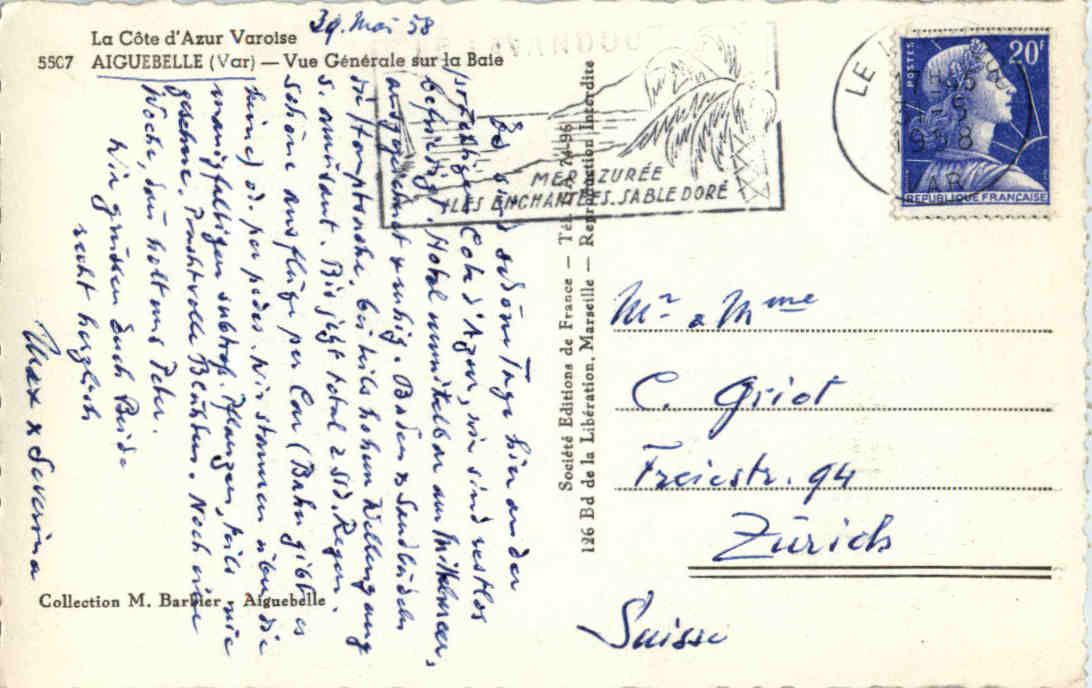 29. Mai 58
La Côte d'Azur Varoise
5507 AIGUEBELLE (Var) — Vue Générale sur la Baie
Es sind schöne Tage hier an der
prächtigen Côte d'Azur, wir sind restlos
befriedigt. Hotel unmittelbar am Mittelmeer,
ausgezeichnet & ruhig. Baden & Sandbaden
im Hauptsache, bei teils hohem Wellengang
s. amüsant. Bis jetzt total 2 Std. Regen.
Schöne Ausflüge per Car (Bahn gibt es
keine) od. per pedes. Wir staunen über die
mannigfaltigen subtrop. Pflanzen, teils nie
gesehene. Prachtvolle Blüten. Noch eine
Woche, dann holt uns Peter.
Wir grüssen Euch Beide
recht herzlich
Max & Severina
Collection M. Barbier - Aiguebelle
Société Editions de France — Tél. 74-96
126 Bd de la Libération, Marseille — Reproduction Interdite
MER AZURÉE
ILES ENCHANTÉES. SABLE DORÉ
LE
1958
VAR
POSTES
20F
REPUBLIQUE FRANÇAISE
Mr & Mme
C. Griot
Freiestr. 94
Zürich
Suisse